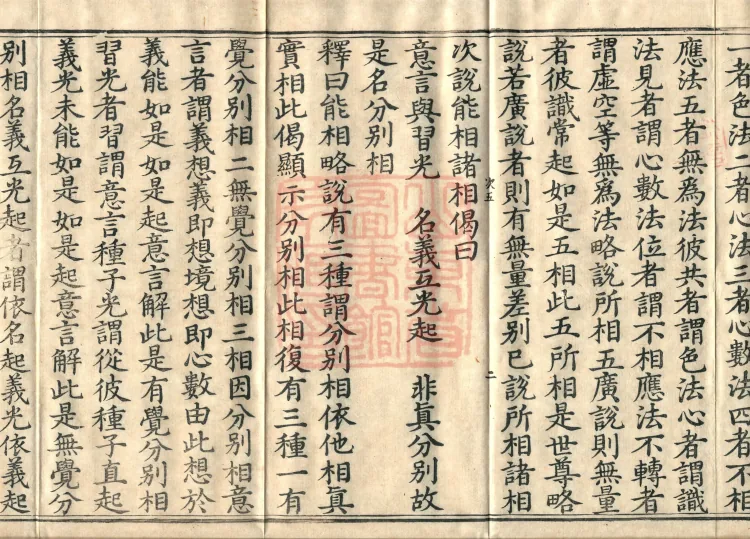 一者色法二者心法三者心數法四者不相
應法五者無為法彼共者謂色法心者謂識
法見者謂心數法位者謂不相應法不轉者
謂虛空等無為法略說所相五廣說則無量
者彼識常起如是五相此五所相是世尊略
說若廣說者則有無量差別已說所相諸相
次五
二
次說能相諸相偈曰
意言與習光　名義互光起　非真分別故
是名分別相
釋曰能相略說有三種謂分別相依他相真
實相此偈顯示分別相此相復有三種一有
覺分別相二無覺分別相三相因分別相意
言者謂義想義即想境想即心數由此想於
義能如是如是起意言解此是有覺分別相
習光者習謂意言種子光謂從彼種子直起
義光未能如是如是起意言解此是無覺分
別相名義互光起者謂依名起義光依義起